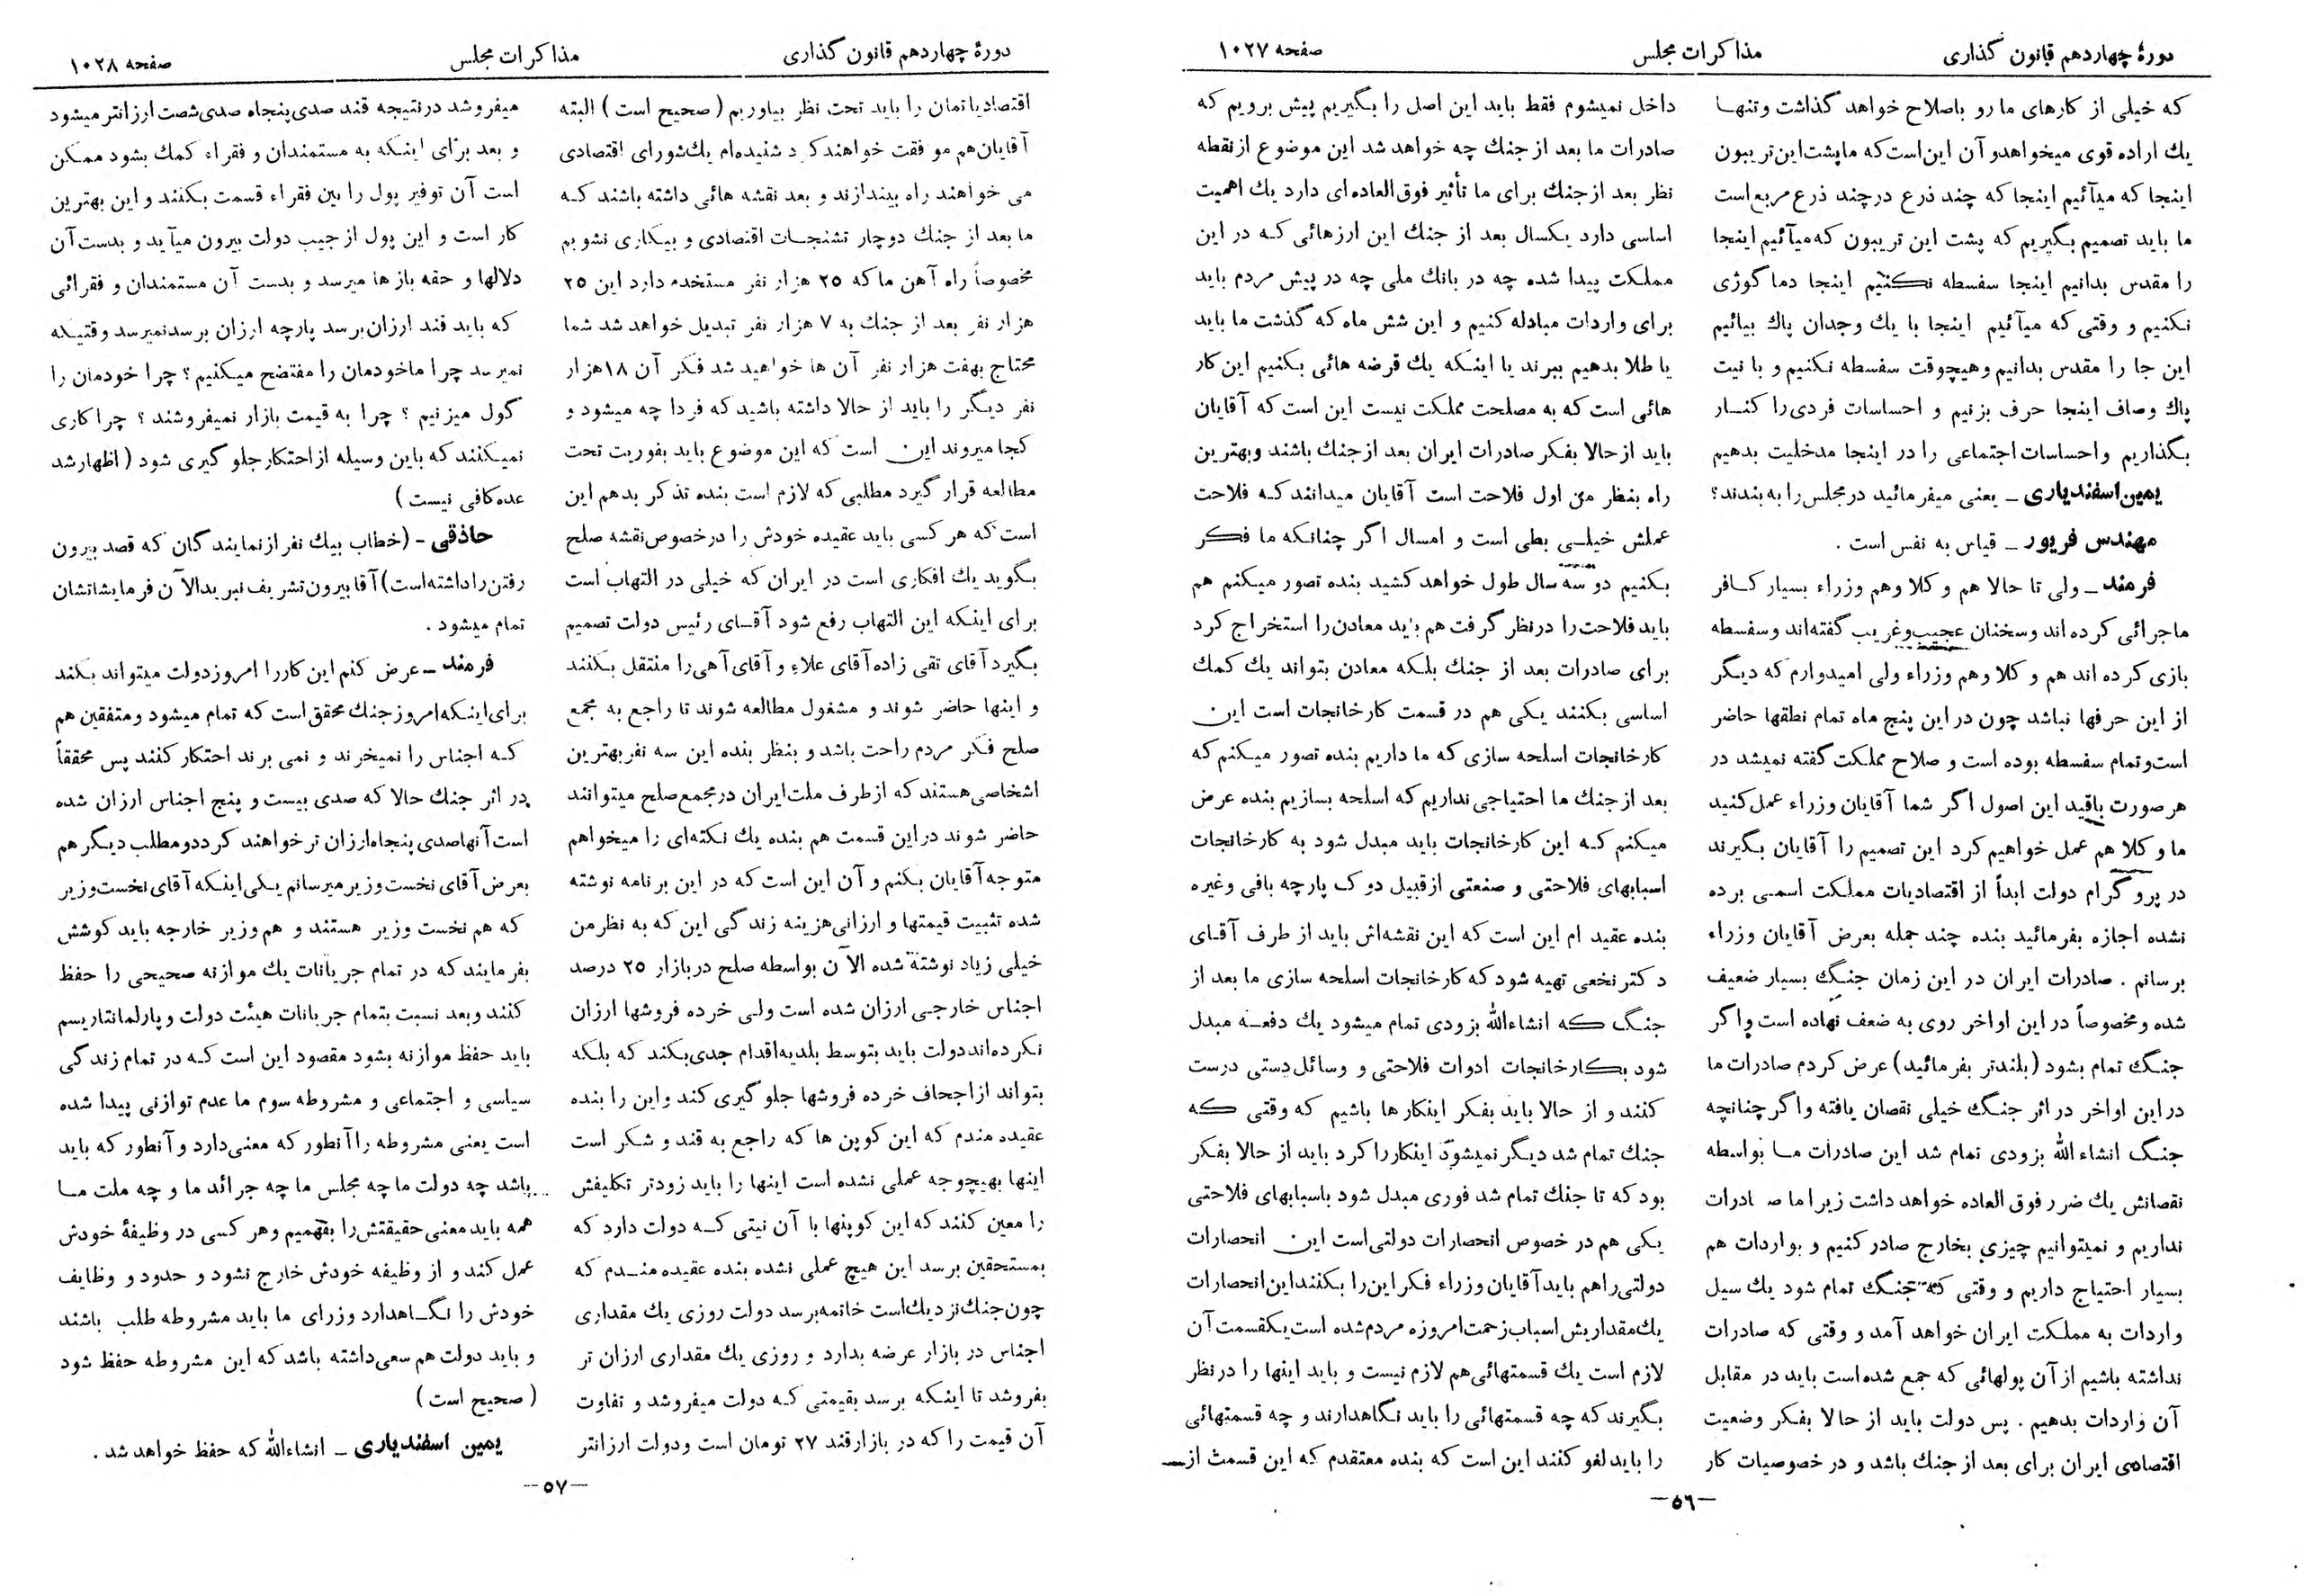 دورهٔ چهاردهم قانون گذاری
مذاکرات مجلس
صفحه ۱۰۲۷
که خیلی از کارهای ما رو باصلاح خواهد گذاشت وتنها
یك اراده قوی میخواهدو آن این‌است که ماپشت این‌تریبون
اینجا که میآئیم اینجا که چند ذرع درچند ذرع مربع است
ما باید تصمیم بگیریم که پشت این تریبون که میآئیم اینجا
را مقدس بدانیم اینجا سفسطه نکنیم اینجا دماگوژی
نکنیم و وقتی که میآئیم اینجا با یك وجدان پاك بیائیم
این جا را مقدس بدانیم وهیچوقت سفسطه نکنیم و با نیت
پاك وصاف اینجا حرف بزنیم و احساسات فردی را کنار
بگذاریم واحساسات اجتماعی را در اینجا مدخلیت بدهیم
یمین اسفندیاری ـ یعنی میفرمائید درمجلس را به بندند؟
مهندس فریور ـ قیاس به نفس است .
فرمند ـ ولی تا حالا هم وکلا وهم وزراء بسیار کافر
ماجرائی کرده اند وسخنان عجیب‌وغریب گفته‌اند وسفسطه
بازی کرده اند هم وکلا وهم وزراء ولی امیدوارم که دیگر
از این حرفها نباشد چون در این پنج ماه تمام نطقها حاضر
است‌وتمام سفسطه بوده است و صلاح مملکت گفته نمیشد در
هرصورت باقید این اصول اگر شما آقایان وزراء عمل کنید
ما وکلا هم عمل خواهیم کرد این تصمیم را آقایان بگیرند
در پروگرام دولت ابداً از اقتصادیات مملکت اسمی برده
نشده اجازه بفرمائید بنده چند جمله بعرض آقایان وزراء
برسانم . صادرات ایران در این زمان جنگ بسیار ضعیف
شده ومخصوصاً در این اواخر روی به ضعف نهاده است واگر
جنگ تمام بشود (بلندتر بفرمائید) عرض کردم صادرات ما
دراین اواخر در اثر جنگ خیلی نقصان یافته واگر چنانچه
جنگ انشاءالله بزودی تمام شد این صادرات ما بواسطه
نقصانش یك ضرر فوق العاده خواهد داشت زیرا ما صادرات
نداریم و نمیتوانیم چیزی بخارج صادر کنیم و بواردات هم
بسیار احتیاج داریم و وقتی که جنگ تمام شود یك سیل
واردات به مملکت ایران خواهد آمد و وقتی که صادرات
نداشته باشیم از آن پولهائی که جمع شده‌است باید در مقابل
آن واردات بدهیم . پس دولت باید از حالا بفکر وضعیت
اقتصادی ایران برای بعد از جنك باشد و در خصوصیات کار
داخل نمیشوم فقط باید این اصل را بگیریم پیش برویم که
صادرات ما بعد از جنك چه خواهد شد این موضوع از نقطه
نظر بعد از جنك برای ما تأثیر فوق‌العاده‌ای دارد یك اهمیت
اساسی دارد یکسال بعد از جنك این ارزهائی که در این
مملکت پیدا شده چه در بانك ملی چه در پیش مردم باید
برای واردات مبادله کنیم و این شش ماه که گذشت ما باید
یا طلا بدهیم ببرند یا اینکه یك قرضه هائی بکنیم این کار
هائی است که به مصلحت مملکت نیست این است که آقایان
باید از حالا بفکر صادرات ایران بعد از جنك باشند وبهترین
راه بنظر من اول فلاحت است آقایان میدانند که فلاحت
عملش خیلی بطی است و امسال اگر چنانکه ما فکر
بکنیم دو سه سال طول خواهد کشید بنده تصور میکنم هم
باید فلاحت را درنظر گرفت هم باید معادن را استخراج کرد
برای صادرات بعد از جنك بلکه معادن بتواند یك کمك
اساسی بکنند یکی هم در قسمت کارخانجات است این
کارخانجات اسلحه سازی که ما داریم بنده تصور میکنم که
بعد از جنك ما احتیاجی نداریم که اسلحه بسازیم بنده عرض
میکنم که این کارخانجات باید مبدل شود به کارخانجات
اسبابهای فلاحتی و صنعتی ازقبیل دوک پارچه بافی وغیره
بنده عقیده ام این است که این نقشه‌اش باید از طرف آقای
دکتر نخعی تهیه شود که کارخانجات اسلحه سازی ما بعد از
جنگ که انشاءالله بزودی تمام میشود یك دفعه مبدل
شود بکارخانجات ادوات فلاحتی و وسائل دستی درست
کنند و از حالا باید بفکر اینکارها باشیم که وقتی که
جنك تمام شد دیگر نمیشود اینکار را کرد باید از حالا بفکر
بود که تا جنك تمام شد فوری مبدل شود باسبابهای فلاحتی
یکی هم در خصوص انحصارات دولتی است این انحصارات
دولتی‌راهم باید آقایان وزراء فکر این‌را بکنند این انحصارات
یك مقداریش اسباب زحمت امروزه مردم شده است یکقسمت آن
لازم است یك قسمتهائی هم لازم نیست و باید اینها را در نظر
بگیرند که چه قسمتهائی را باید نگاهدارند و چه قسمتهائی
را باید لغو کنند این است که بنده معتقدم که این قسمت از
ـ۵۶ـ
دورهٔ چهاردهم قانون گذاری
مذاکرات مجلس
صفحه ۱۰۲۸
اقتصادیاتمان را باید تحت نظر بیاوریم (صحیح است) البته
آقایان هم موفقت خواهند کرد شنیده‌ام یك شورای اقتصادی
می خواهند راه بیندازند و بعد نقشه هائی داشته باشند که
ما بعد از جنك دوچار تشنجات اقتصادی و بیکاری نشویم
مخصوصاً راه آهن ما که ۲۵ هزار نفر مستخدم دارد این ۲۵
هزار نفر بعد از جنك به ۷ هزار نفر تبدیل خواهد شد شما
محتاج بهفت هزار نفر آن ها خواهید شد فکر آن ۱۸ هزار
نفر دیگر را باید از حالا داشته باشید که فردا چه میشود و
کجا میروند این است که این موضوع باید بفوریت تحت
مطالعه قرار گیرد مطلبی که لازم است بنده تذکر بدهم این
است که هر کسی باید عقیده خودش را درخصوص نقشه صلح
بگوید یك افکاری است در ایران که خیلی در التهاب است
برای اینکه این التهاب رفع شود آقای رئیس دولت تصمیم
بگیرد آقای تقی زاده آقای علاء و آقای آهی را منتقل بکنند
و اینها حاضر شوند و مشغول مطالعه شوند تا راجع به مجمع
صلح فکر مردم راحت باشد و بنظر بنده این سه نفر بهترین
اشخاصی هستند که ازطرف ملت ایران درمجمع صلح میتوانند
حاضر شوند در این قسمت هم بنده یك نکته‌ای را میخواهم
متوجه آقایان بکنم و آن این است که در این برنامه نوشته
شده تثبیت قیمتها و ارزانی هزینه زندگی این که به نظر من
خیلی زیاد نوشته شده الآن بواسطه صلح در بازار ۲۵ درصد
اجناس خارجی ارزان شده است ولی خرده فروشها ارزان
نکرده‌اند دولت باید بتوسط بلدیه اقدام جدی بکند که بلکه
بتواند از اجحاف خرده فروشها جلوگیری کند واین را بنده
عقیده مندم که این کوپن ها که راجع به قند و شکر است
اینها بهیچوجه عملی نشده است اینها را باید زودتر تکلیفش
را معین کنند که این کوپنها با آن نیتی که دولت دارد که
بمستحقین برسد این هیچ عملی نشده بنده عقیده مندم که
چون جنك نزدیك است خاتمه برسد دولت روزی یك مقداری
اجناس در بازار عرضه بدارد و روزی یك مقداری ارزان تر
بفروشد تا اینکه برسد بقیمتی که دولت میفروشد و تفاوت
آن قیمت را که در بازار قند ۲۷ تومان است ودولت ارزانتر
میفروشد درنتیجه قند صدی پنجاه صدی شصت ارزانتر میشود
و بعد برای اینکه به مستمندان و فقراء کمك بشود ممکن
است آن توفیر پول را بین فقراء قسمت بکنند و این بهترین
کار است و این پول از جیب دولت بیرون میآید و بدست آن
دلالها و حقه بازها میرسد و بدست آن مستمندان و فقرائی
که باید قند ارزان برسد پارچه ارزان برسد نمیرسد وقتیکه
نمیرسد چرا ماخودمان را مفتضح میکنیم ؟ چرا خودمان را
گول میزنیم ؟ چرا به قیمت بازار نمیفروشند ؟ چرا کاری
نمیکنند که باین وسیله از احتکار جلوگیری شود (اظهارشد
عده کافی نیست)
حاذقی ـ (خطاب بیك نفر از نمایندگان که قصد بیرون
رفتن را داشته‌است) آقا بیرون تشریف نبرید الآن فرمایشاتشان
تمام میشود .
فرمند ـ عرض کنم این کار را امروز دولت میتواند بکند
برای اینکه امروز جنك محقق است که تمام میشود ومتفقین هم
که اجناس را نمیخرند و نمی برند احتکار کنند پس محققاً
در اثر جنك حالا که صدی بیست و پنج اجناس ارزان شده
است آنها صدی پنجاه ارزان تر خواهند کرد دو مطلب دیگر هم
بعرض آقای نخست وزیر میرسانم یکی اینکه آقای نخست وزیر
که هم نخست وزیر هستند و هم وزیر خارجه باید کوشش
بفرمایند که در تمام جریانات یك موازنه صحیحی را حفظ
کنند وبعد نسبت بتمام جریانات هیئت دولت وپارلمانتاریسم
باید حفظ موازنه بشود مقصود این است که در تمام زندگی
سیاسی و اجتماعی و مشروطه سوم ما عدم توازنی پیدا شده
است یعنی مشروطه را آنطور که معنی دارد و آنطور که باید
باشد چه دولت ما چه مجلس ما چه جرائد ما و چه ملت ما
همه باید معنی حقیقتش را بفهمیم وهر کسی در وظیفهٔ خودش
عمل کند و از وظیفه خودش خارج نشود و حدود و وظایف
خودش را نگاهدارد وزرای ما باید مشروطه طلب باشند
و باید دولت هم سعی داشته باشد که این مشروطه حفظ شود
(صحیح است)
یمین اسفندیاری ـ انشاءالله که حفظ خواهد شد .
ـ۵۷ـ